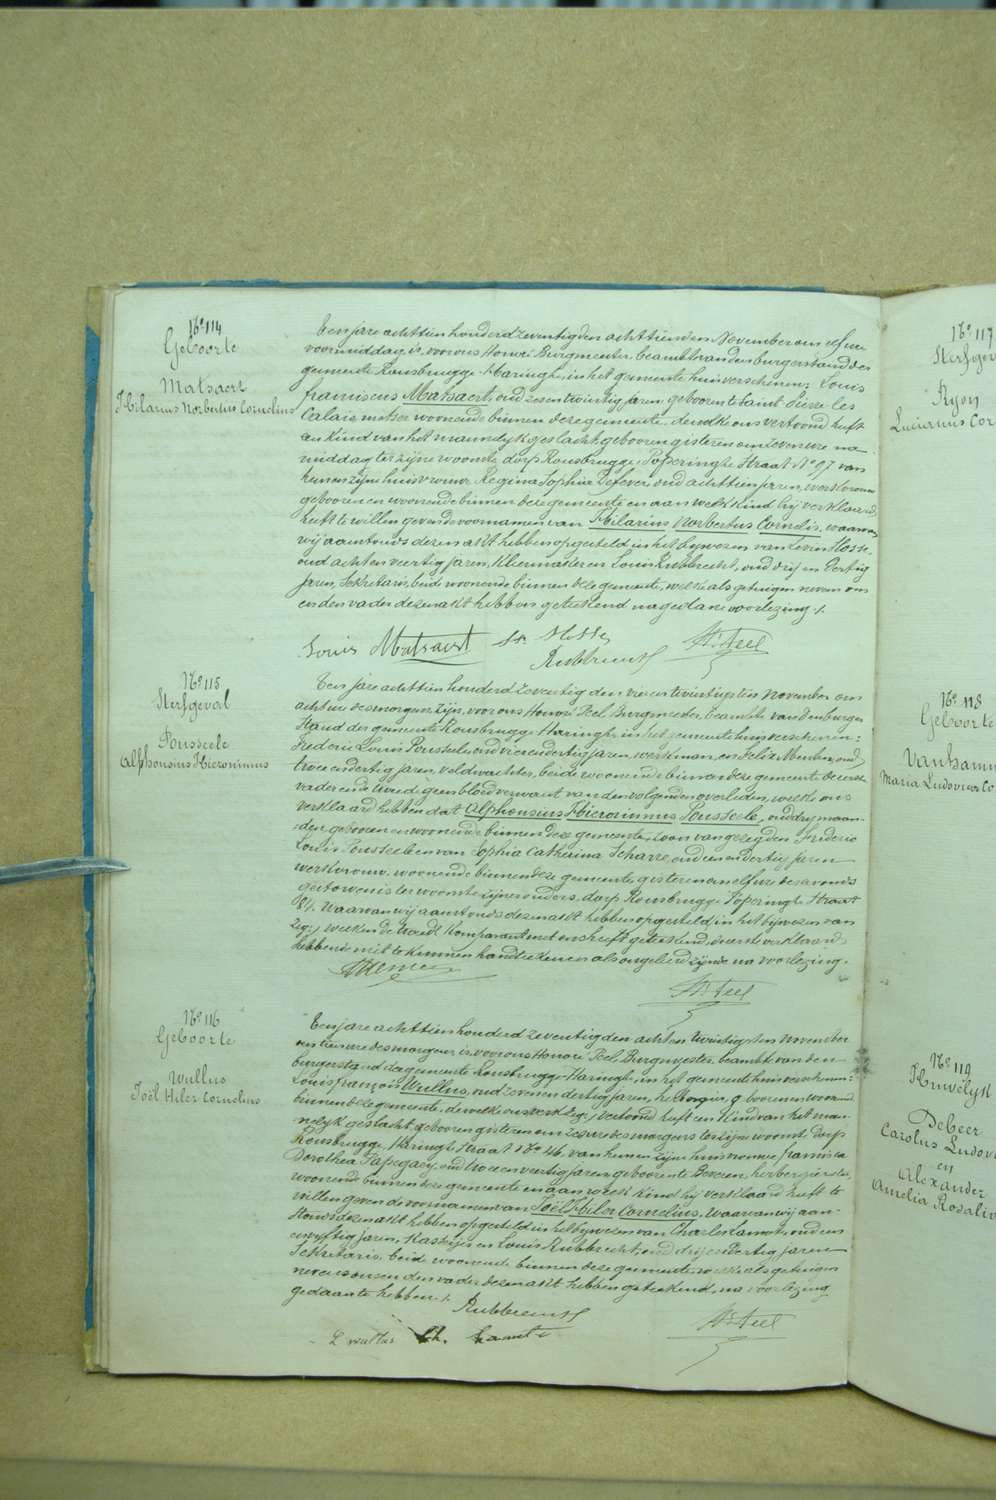 No 114
Geboorte
Matsaert
Hilarius Norbertus Cornelius
Een jare achttien honderd zeventig den achttienden November om elf ure
voormiddag is, voor ons Honoré Burgmeester, beambte van den burgerstand der
gemeente Rousbrugge-Haringhe, in het gemeente huis verschenen: Louis
franciscus Matsaert, oud zesentwintig jaren, geboren te Saint Pierre-les
Calais, metser woonende binnen deze gemeente, dewelke ons vertoond heeft
een Kind van het mannelyk geslacht geboren gisteren om zeven ure na-
middag ter zijne woonste, dorp Rousbrugge, Poperinghe Straat No 97 van
hem en zijne huisvrouw Regina Sophie Defever, oud achttien jaren, werkvrouw
geboren en woonende binnen deze gemeente en aan welk kind hij verklaard
heeft te willen geven de voornamen van Hilarius Norbertus Cornelis, waarvan
wij aanstonds dezen akt hebben opgesteld in het bywezen van Livin Hosse,
oud acht en veertig jaren, Kleermaker en Louis Rubbrecht, oud drij en dertig
jaren, Sekretaris, beide woonende binnen deze gemeente, welke als getuigen nevens ons
en den vader dezen akt hebben geteekend na gedane voorlezing ./.
Louis Matsaert Hosse
Rubbrecht H. Feel
No 115
Sterfgeval
Pousseele
Alphonsius Hieronimus
Een jare achttien honderd zeventig den vier en twintigsten November om
acht ure des morgens zijn, voor ons Honoré Feel, Burgmeester, beambte van den burger
stand der gemeente Rousbrugge-Haringhe, in het gemeente huis verschenen:
Frederic Louis Pousseele, oud vierendertig jaren, werkman, en Felix Memen, oud
twee en dertig jaren, veldwachter, beide woonende binnen deze gemeente de eerste
vader en de tweede geen bloedverwant van den volgenden overleden, welke ons
verklaard hebben dat Alphonsius Hieronimus Pousseele, oud drij maan-
den geboren en woonende binnen deze gemeente, zoon van gezegden Frederic
Louis Pousseele en van Sophia Catherina Scharre, oud een en dertig jaren
werkvrouw, woonende binnen deze gemeente, gisteren om elf ure des avonds
gestorven is ter woonste zijner ouders, dorp Rousbrugge Poperinghe Straat
84. Waarvan wij aanstonds dezen akt hebben opgesteld in het bijwezen van
welken de tweede Komparant met ons heeft geteekend, de eerste verklaard
hebbende niet te kunnen handteekenen als ongeleerd zijnde na voorlezing.
H. Feel
No 116
Geboorte
Wullus
Joël Hiler Cornelius
Een jare achttien honderd zeventig den achtentwintigsten November
om tien ure des morgens is, voor ons Honoré Feel Burgmeester, beambte van den
burgerstand der gemeente Rousbrugge-Haringhe, in het gemeente huis verschenen:
Louis françois Wullus, oud zeven en dertig jaren, herbergier, geboren en woonend
binnen deze gemeente, dewelke ons vertoond heeft een Kind van het man-
nelijk geslacht geboren gisteren om zes ure des morgens ter zijn woonste dorp
Rousbrugge, Haringhe Straat No 46, van hem en zijne huisvrouw francisca
Dorothea Papegaey, oud twee en veertig jaren geboren te Beveren, herbergierster,
woonende binnen deze gemeente en aan welk Kind hij verklaard heeft te
willen geven de voornamen van Joël Hiler Cornelius. Waarvan wij aan-
stonds dezen akt hebben opgesteld in het bijwezen van Charles Lamote, oud een
en vyftig jaren, en Louis Rubbrecht oud drij en dertig jaren
Sekretaris, beide woonende binnen deze gemeente, welke als getuigen
nevens ons en den vader dezen akt hebben geteekend, na voorlezing
gedaan te hebben ./.
Rubbrecht H. Feel
L wullus Ch. Lamote
No 117
Sterfgev
Ryon
Lucianus Cor
No 118
Geboorte
Vanhamm
Maria Ludovica Co
No 119
Huwelyk
DeBeer
Carolus Ludov
en
Alexander
Amelia Rosalia